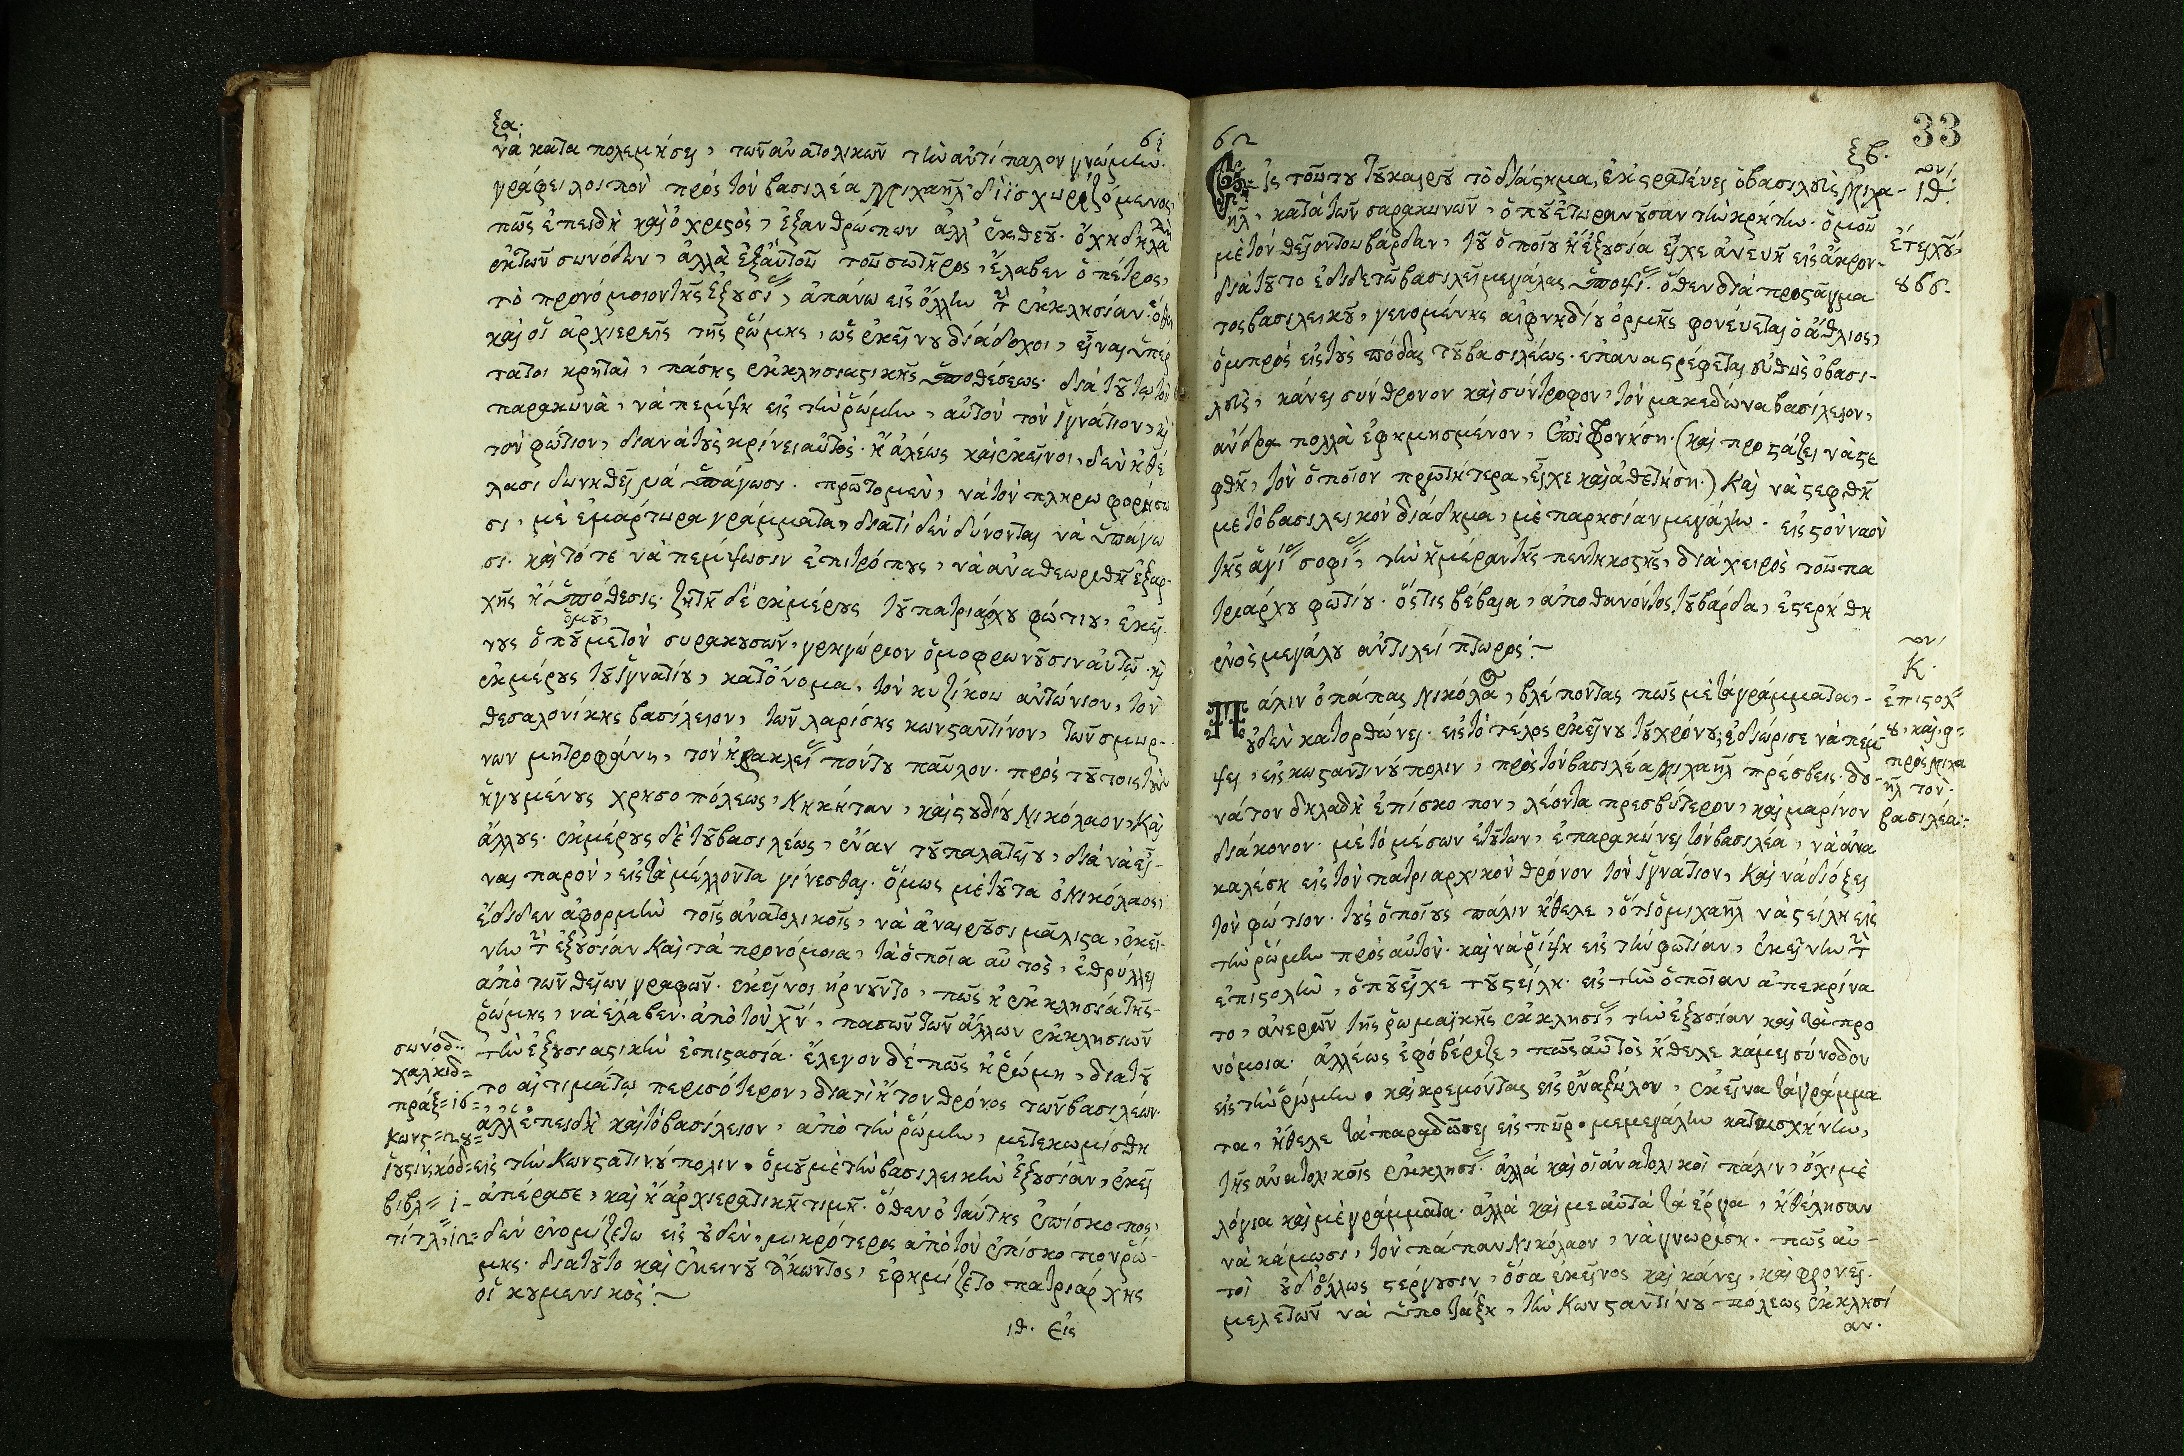 ξα.
61
νὰ καταπολεμήσει, τῶν ἀνατολικῶν τὴν ἀντίπαλον γνώμην.
γράφει λοιπὸν πρὸς τὸν βασιλέα Μιχαήλ· διϊσχυριζόμενος,
πῶς ἐπειδὴ καὶ ὁ χριστὸς, ἐξανθρώπων ἀλλ' ἐκ θεοῦ. ὄχι δηλαδὴ
ἐκ τῶν συνόδων, ἀλλὰ ἐξαὐτοῦ τοῦ σωτῆρος, ἔλαβεν ὁ πέτρος,
τὸ προνόμοιον τῆς ἐξουσί, ἀπάνω εἰς ὅλλην τ ἐκκλησίαν· ὅθεν
καὶ οἱ ἀρχιερεῖς τῆς ῥώμης, ὡς ἐκείνου διάδοχοι, εἶναι ὑπέρ
τατοι κριταὶ, πάσης ἐκκλησιαστικῆς ὑποθέσεως. διὰ τοῦτω τὸν
παρακινᾶ, νὰ πέμψη εἰς τὴν ῥώμην, αὐτὸν τὸν ἰγνάτιον, κ
τὸν φώτιον, διανὰ τοὺς κρίνει αὐτὸς· ἢ ἀλέως καὶ ἐκεῖνοι, δὲν ἤθέ
λασι δυνηθεῖ νὰ ὑπάγωσι. πρῶτο μὲν, νὰ τὸν πληρωφορήσω
σι, μὲ ἐμάρτυρα γράμματα, διατὶ δὲν δύνονται νὰ ὑπάγω
σι. καὶ τότε νὰ πέμψωσιν ἐπιτρόπους, νὰ ἀναθεωρηθῆ ἐξαρ-
χῆς ἡ ὑπόθεσις. ζητῆ δὲ ἐκμέρους τοῦ πατριάρχου φώτιου, ἐκεί
ὁμοῦ,
νους ὁποῦ μετὸν συρακουσῶν, γρηγώριον ὁμοφρωνοῦσιν αὐτῶ. κ
ἐκμέρους τοῦ ἰγνατίου, κατ' ὄνομα, τὸν κυζίκου ἀντώνιον, τὸν
θεσαλονίκης βασίλειον, τῶν λαρίσης κωνσταντίνον, τῶν σμυρ-
νων μητροφάνη, τὸν ἡρακλεί πόντου παῦλον. πρὸς τούτοις τοὺς
ἡγουμένους χρησοπόλεως, Νικήταν, καὶ στουδίου Νικόλαον, καὶ
ἄλλους. ἐκμέρους δὲ τοῦ βασιλέως, ἕναν τοῦ παλατείου, διὰ νὰ εἶ-
ναι παρὸν, εἰς τὰ μέλλοντα γίνεσθαι. ὅμως μὲ τοῦτα ὁ Νικόλαος,
ἔδιδεν ἀφορμὴν τοῖς ἀνατολικοῖς, νὰ ἀναιροῦσι μάλιστα, ἐκεί-
νην τ ἐξουσίαν καὶ τὰ προνόμοια, τὰ ὁποῖα αὐτὸς, ἐθρύλλει
ἀπὸ τῶν θείων γραφῶν. ἐκεῖνοι ἠρνοῦντο, πῶς ἡ ἐκκλησία τῆς-
ῥώμης, νὰ ἔλαβεν. ἀπὸ τὸν χν, πασῶν τῶν ἄλλων ἐκκλησιῶν
τὴν ἐξουσιαστικὴν ἐπιστασία. ἔλεγον δὲ πῶς ἡ ῥώμη, διατοῦ
το αἰτιμάτω περισότερον, διατὶ ἦτον θρόνος τῶν βασιλέων.
ἀλλ' ἐπειδὴ καὶ τὸ βασίλειον, ἀπὸ τὴν ῥώμην, μετεκωμίσθη
εἰς τὴν Κωνσταντινούπολιν. ὁμοῦ μὲ τὴν βασιλεικὴν ἐξουσίαν, ἐκεῖ
ἀπέρασε, καὶ ἡ ἀρχιερατικὴ τιμή. ὅθεν ὁ ταύτης ἐπίσκοπος,
δὲν ἐνομίζετω εἰς οὐδὲν, μικρότερος ἀπὸ τὸν ἐπίσκοπον ῥώ-
μης. διατοῦτο καὶ ἐκεινοῦ ἄκωντος, ἐφημίζετο πατριάρχης
οἰκουμενικός:~
συνόδ..
χαλκιδ=
πράξ=ις=
Κωνς=
ἰουστίν. κόδ=
βιβλ= ι-
τίτλ=
ιθ. Εἰς
62
33
ξβ.
Εἰς τούτου τοῦ καιροῦ τὸ διάστημα, ἐκστρατέυει ὁ βασιλεὺς Μιχα-
ὴλ, κατὰ τῶν σαρακινῶν, ὁποῦ ἐτυρανοῦσαν τὴν κρήτην. ὁμοῦ
μὲ τὸν θεῖον του βάρδαν, τοῦ ὁποίου ἡ ἐξουσία εἶχε ἀνευῆ εἰς ἄκρον-
διὰ τοῦτο ἔδιδε τῶ βασιλεῖ μεγάλας ὑποψί. ὅθεν διὰ προστάγμα
τος βασιλεικοῦ, γενομένης αἰφνηδίου ὁρμῆς φονέυεται ὁ ἄθλιος,
ὀμπρὸς εἰς τοὺς πόδας τοῦ βασιλέως. ἐπαναστρέφεται εὐθὺς ὁ βασι-
λεὺς, κάνει σύνθρονον καὶ σύντροφον, τὸν μακεδώνα βασίλειον,
ἄνδρα πολλὰ ἐφημησμένον, (καὶ προστάζει νὰ στε
φθῆ, τὸν ὁποῖον πρωτήτερα, εἶχε καὶ ἀθετήση.) Καὶ νὰ στεφθῆ
μὲ τὸ βασιλεικὸν διάδημα, μὲ παρησίαν μεγάλην. εἰς τὸν ναὸν
τῆς ἁγί σοφί, τὴν ἡμέραν τῆς πεντηκοστῆς, διὰ χειρὸς τοῦ πα
τριάρχου φωτίου. ὅστις βέβαια, ἀποθανόντος τοῦ βάρδα, ἐστερήθη
ἑνὸς μεγάλου ἀντιλείπτωρος:~
Πάλιν ὁ πάπας Νικόλα, βλέποντας πῶς μὲ τὰ γράμματα,-
οὐδὲν κατορθώνει. εἰς τὸ τέλος ἐκείνου τοῦ χρόνου, ἐδιώρισε νὰ πέμ
ψει, εἰς κωσταντινούπολιν, πρὸς τὸν βασιλέα Μιχαὴλ πρέσβεις. δο-
νάτον δηλαδὴ ἐπίσκοπον, λέοντα πρεσβύτερον, καὶ μαρίνον
διάκονον. μὲ τὸ μέσων ἐτούτων, ἐπαρακίνει τὸν βασιλέα, νὰ ἀνα
καλέση εἰς τὸν πατριαρχικὸν θρόνον τὸν ἰγνάτιον, καὶ νὰ διόξει
τὸν φώτιον. τοὺς ὁποίους πάλιν ἤθελε, ὅτι ὁ μιχαὴλ νὰ στείλη εἰς
τὴν ῥώμην πρὸς αὐτὸν. καὶ νὰ ῥίψη εἰς τὴν φωτίαν, ἐκείνην τ
ἐπιστολὴν, ὁποῦ εἶχε τοῦ στείλη. εἰς τὴν ὁποίαν ἀπεκρίνα
το, ἀνερῶν τῆς ῥωμαϊκῆς ἐκκλησί, τὴν ἐξουσίαν καὶ τὰ προ
νόμοια. ἀλλέως ἐφοβέριζε, πῶς αὐτὸς ἤθελε κάμει σύνοδον
εἰς τὴν ῥώμην. καὶ κρεμόντας εἰς ἕνα ξύλον, ἐκεῖνα τὰ γράμμα
τα, ἤθελε τὰ παραδώσει εἰς πῦρ. μὲ μεγάλην καταισχήνην,
τῆς ἀνατολικῆς ἐκκλησί. ἀλλὰ καὶ οἱ ἀνατολικοὶ πάλιν, ὄχι μὲ
λόγια καὶ μὲ γράμματα. ἀλλὰ καὶ με αὐτὰ τὰ ἔργα, ἠθέλησαν
νὰ κάμωσι, τὸν πάπαν Νικόλαον, νὰ γνωρίση. πῶς αὐ-
τοὶ οὐδόλως στέργουσιν, ὅσα ἐκεῖνος καὶ κάνει, καὶ φρονεῖ.
μελετῶν νὰ ὑποτάξη, τὴν Κωνσταντίνου πόλεως ἐκκλησί
αν.
ιθ.
ἔτει χοῦ
Κ.
ἐπιστολ
προς Μιχα
ὴλ τον.
βασιλέα: